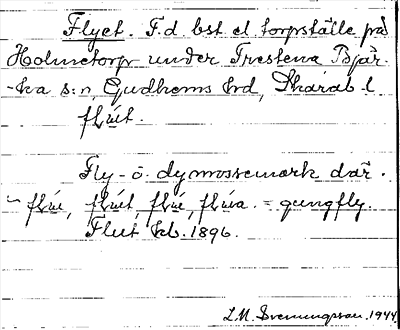 Flyet. F.d. bst el. torpställe på
Holmetorp under Trestena Bjär-
-ka s:n Gudhems hrd, Skarab. l.
flúet.
Fly- o. dymossemark där.
~ flúe, flúet, flúe, flúa. = gungfly.
Fluet kb. 1896.
L.M. Svenungsson. 1944.